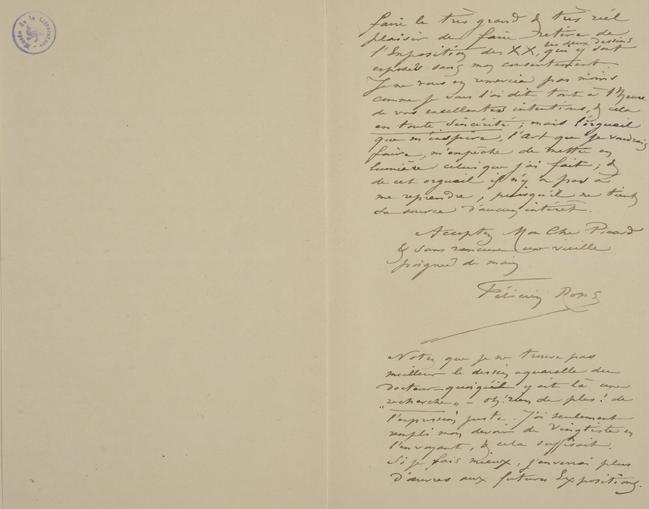 Musée de la Littérature
faire le très grand & très réel
plaisir de faire retirer de
l'Exposition des XX, les deux dessins qui y sont
exposés sans mon consentement.
Je ne vous en remercie pas moins
comme je vous l'ai dit tout à l'heure
de vos excellentes intentions, & cela
en toute sincérité, mais l'orgueil
que m'inspire, l'Art que je voudrais
faire, m'empêche de mettre en
lumière celui que j'ai fait; &
de cet orgueil il n'y a pas à
me reprendre, puisqu'il ne tient
sa source d'aucun intérêt.
Acceptez Mon Cher Picard
& sans rancune une vieille
poignée de main
Félicien Rops
Notez que je ne trouve pas
meilleur le dessin aquarelle du
Docteur quoiqu'il y ait là une
"recherche" – oh! rien de plus! de
l'expression juste. J'ai seulement
rempli mon devoir de Vingtiste en
l'envoyant, & cela suffisait.
Si je fais mieux, j'enverrai plus
d'œuvres aux futures Expositions.